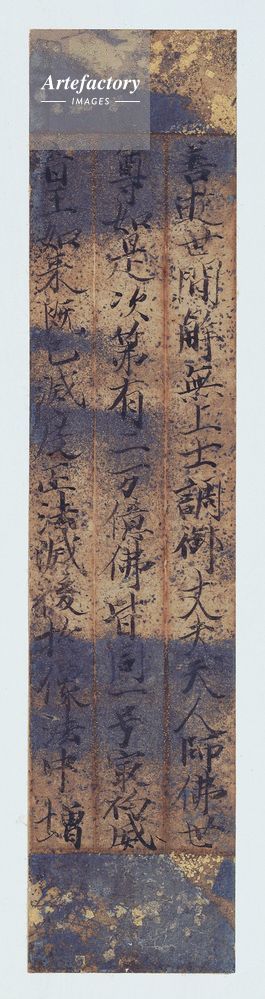 Artefactory
IMAGES
善逝世間解無上士調御丈夫天人師佛世
尊如是次第有二万億佛皆同一号最初威
音王如来既已滅度正法滅後於像法中增